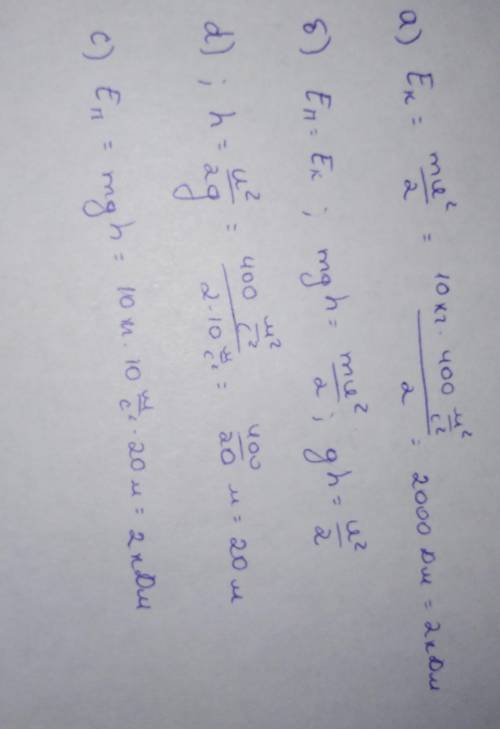 а) Eк = mu²/2 = 10 кг · 400 м²/с² / 2 = 2000 Дж = 2 кДж
б) Eп = Eк ; mgh = mu²/2 ; gh = u²/2
d) ; h = u²/2g = 400 м²/с² / 2 · 10 м/с² = 400/20 м = 20 м
c) Eп = mgh = 10 кг · 10 м/с² · 20 м = 2 кДж